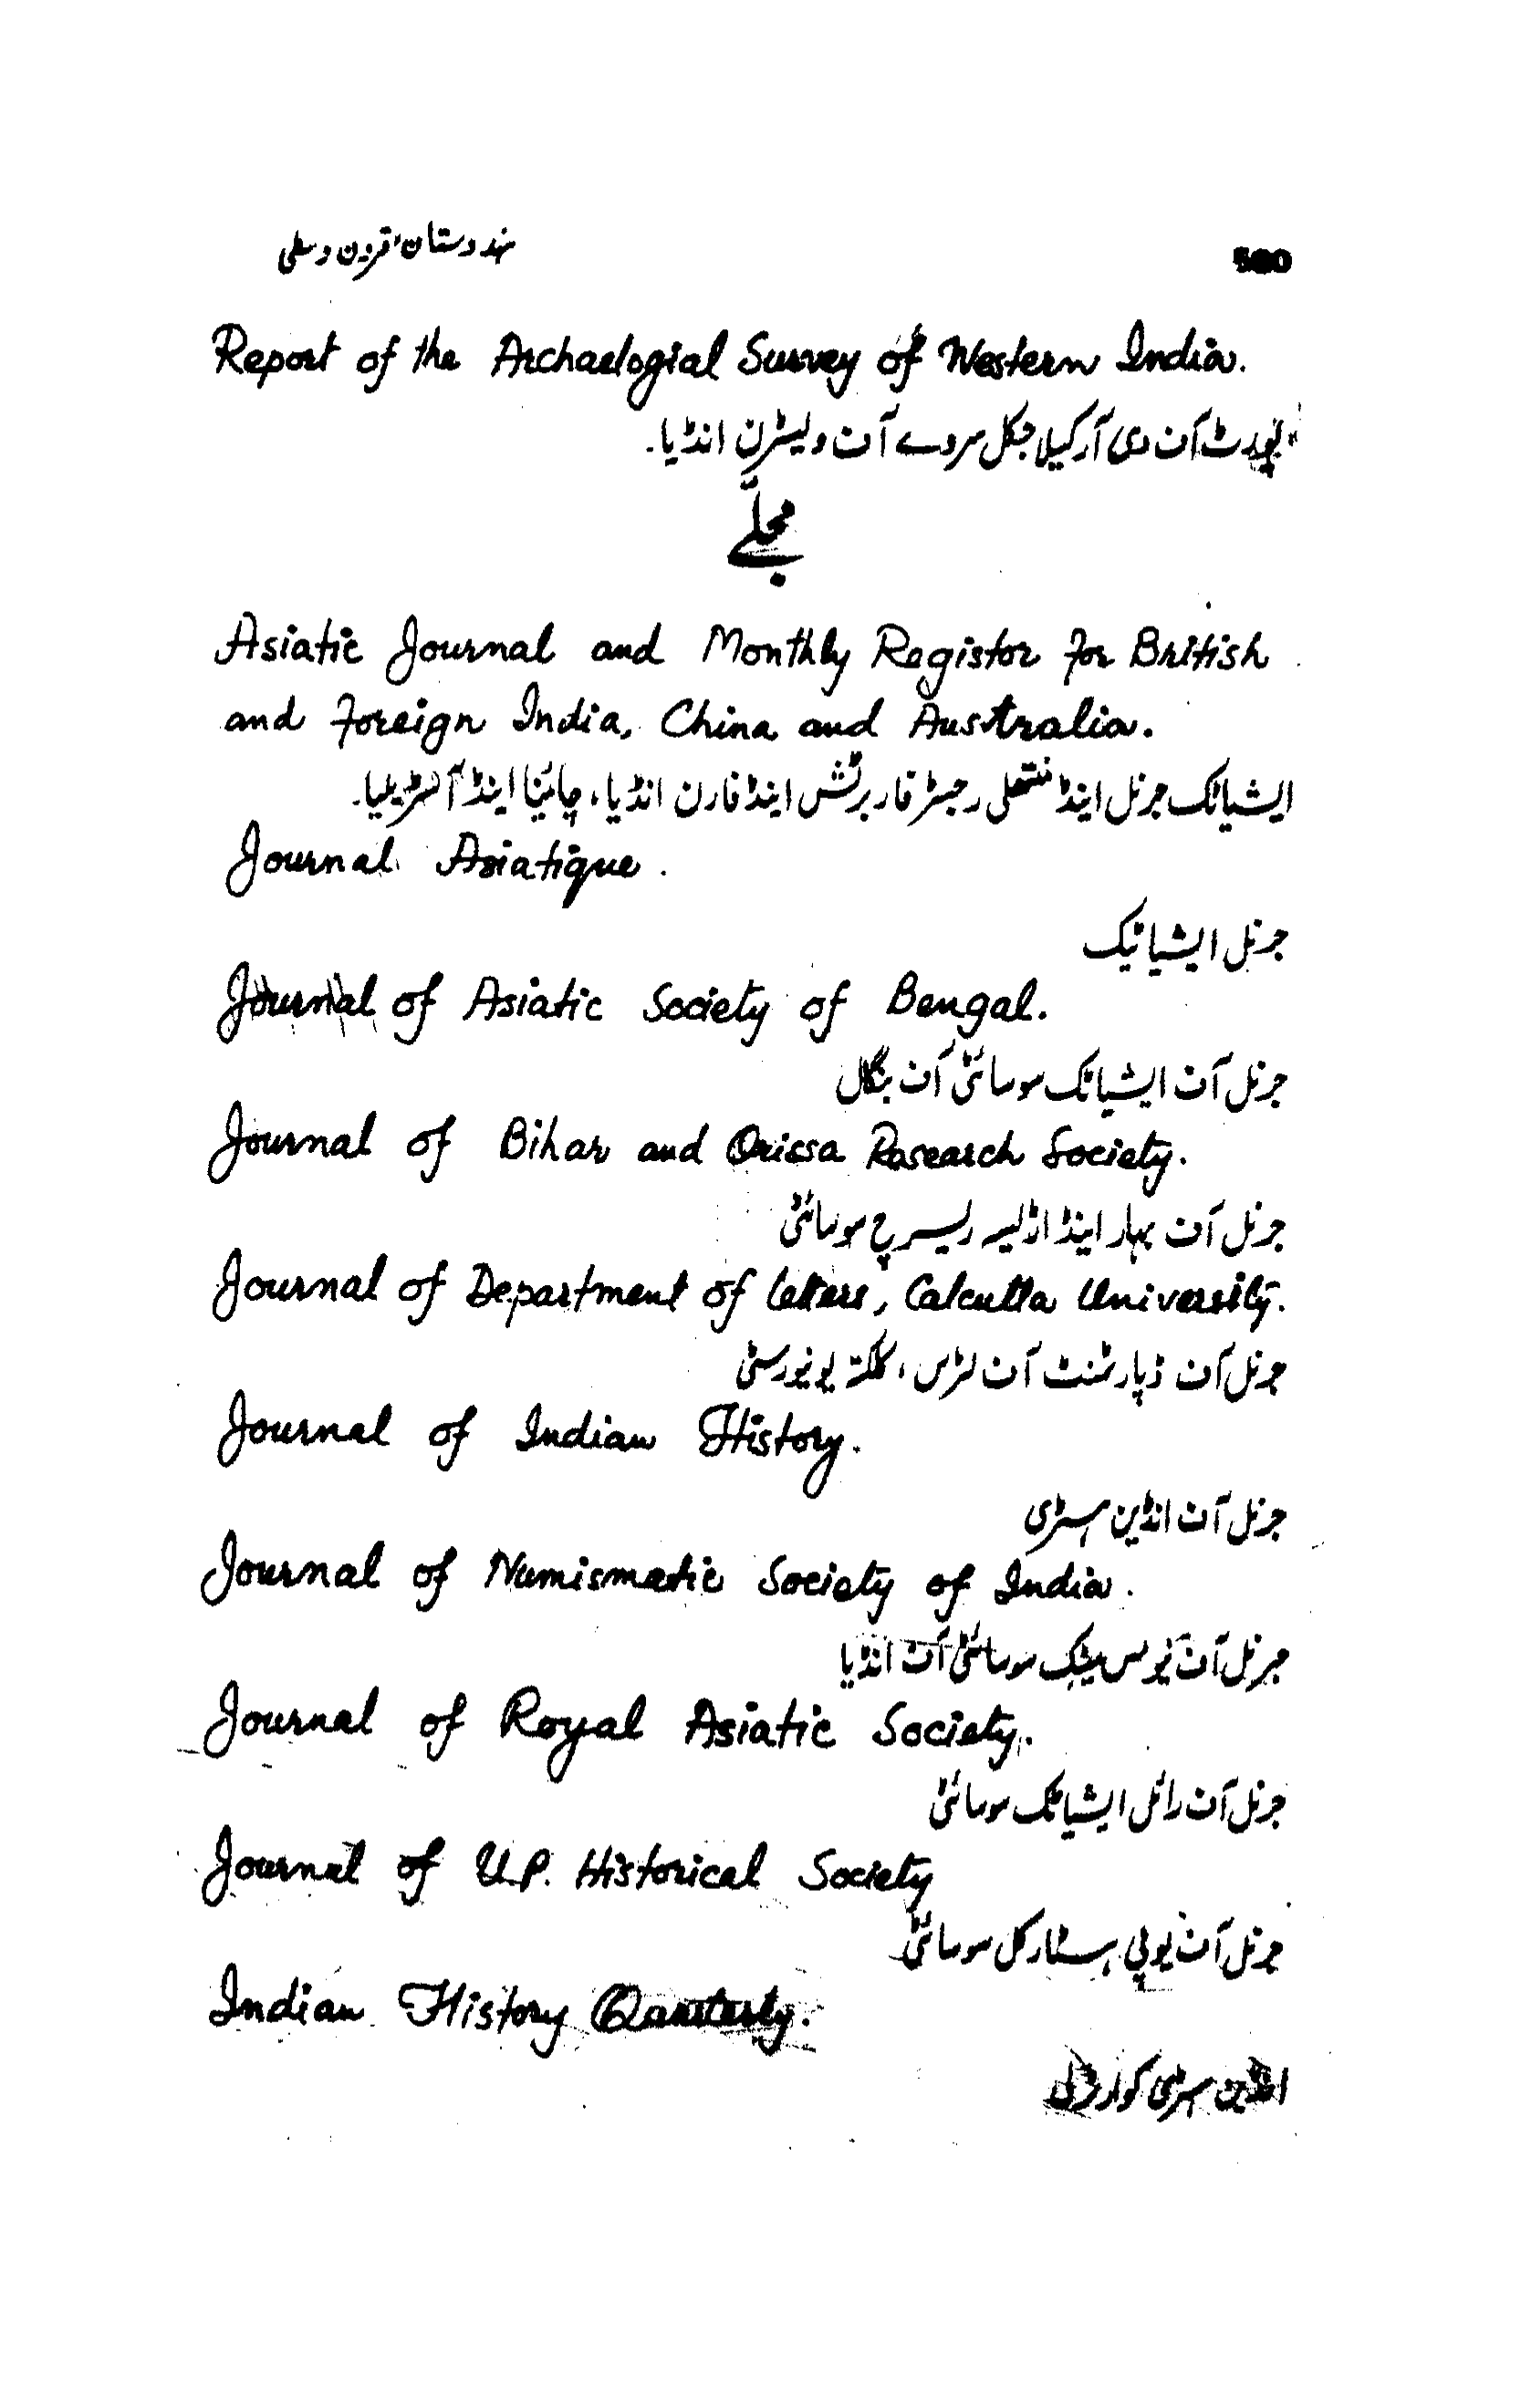 ہندوستان، قرون وسطی
Report of the Archaelogial Survey of Western India.
رپورٹ آف دی آرکیلاجکل سروے آف ویسٹرن انڈیا۔
مجلّے
Asiatic Journal and Monthly Registor for British
and Foreign India, China and Australia.
ایشیاٹک جرنل اینڈ منتھلی رجسٹر فار برٹش اینڈ فارن انڈیا، چائینا اینڈ آسٹریلیا۔
Journal Asiatique.
جرنل ایشیاٹیک
Journal of Asiatic Society of Bengal.
جرنل آف ایشیاٹک سوسائٹی آف بنگال
Journal of Bihar and Orissa Research Society.
جرنل آف بہار اینڈ اڑلیسہ ریسرچ سوسائٹی
Journal of Department of Letters, Calcutta University.
جرنل آف ڈپارٹمنٹ آف لٹرس، کلکتہ یونیورسٹی
Journal of Indian History.
جرنل آف انڈین ہسٹری
Journal of Numismatic Society of India.
جرنل آف نیومس میٹک سوسائٹی آف انڈیا
Journal of Royal Asiatic Society.
جرنل آف رائل ایشیاٹک سوسائٹی
Journal of U.P. Historical Society
جرنل آف یوپی ہسٹاریکل سوسائٹی
Indian History Quarterly.
انڈین ہسٹری کوارٹرلی